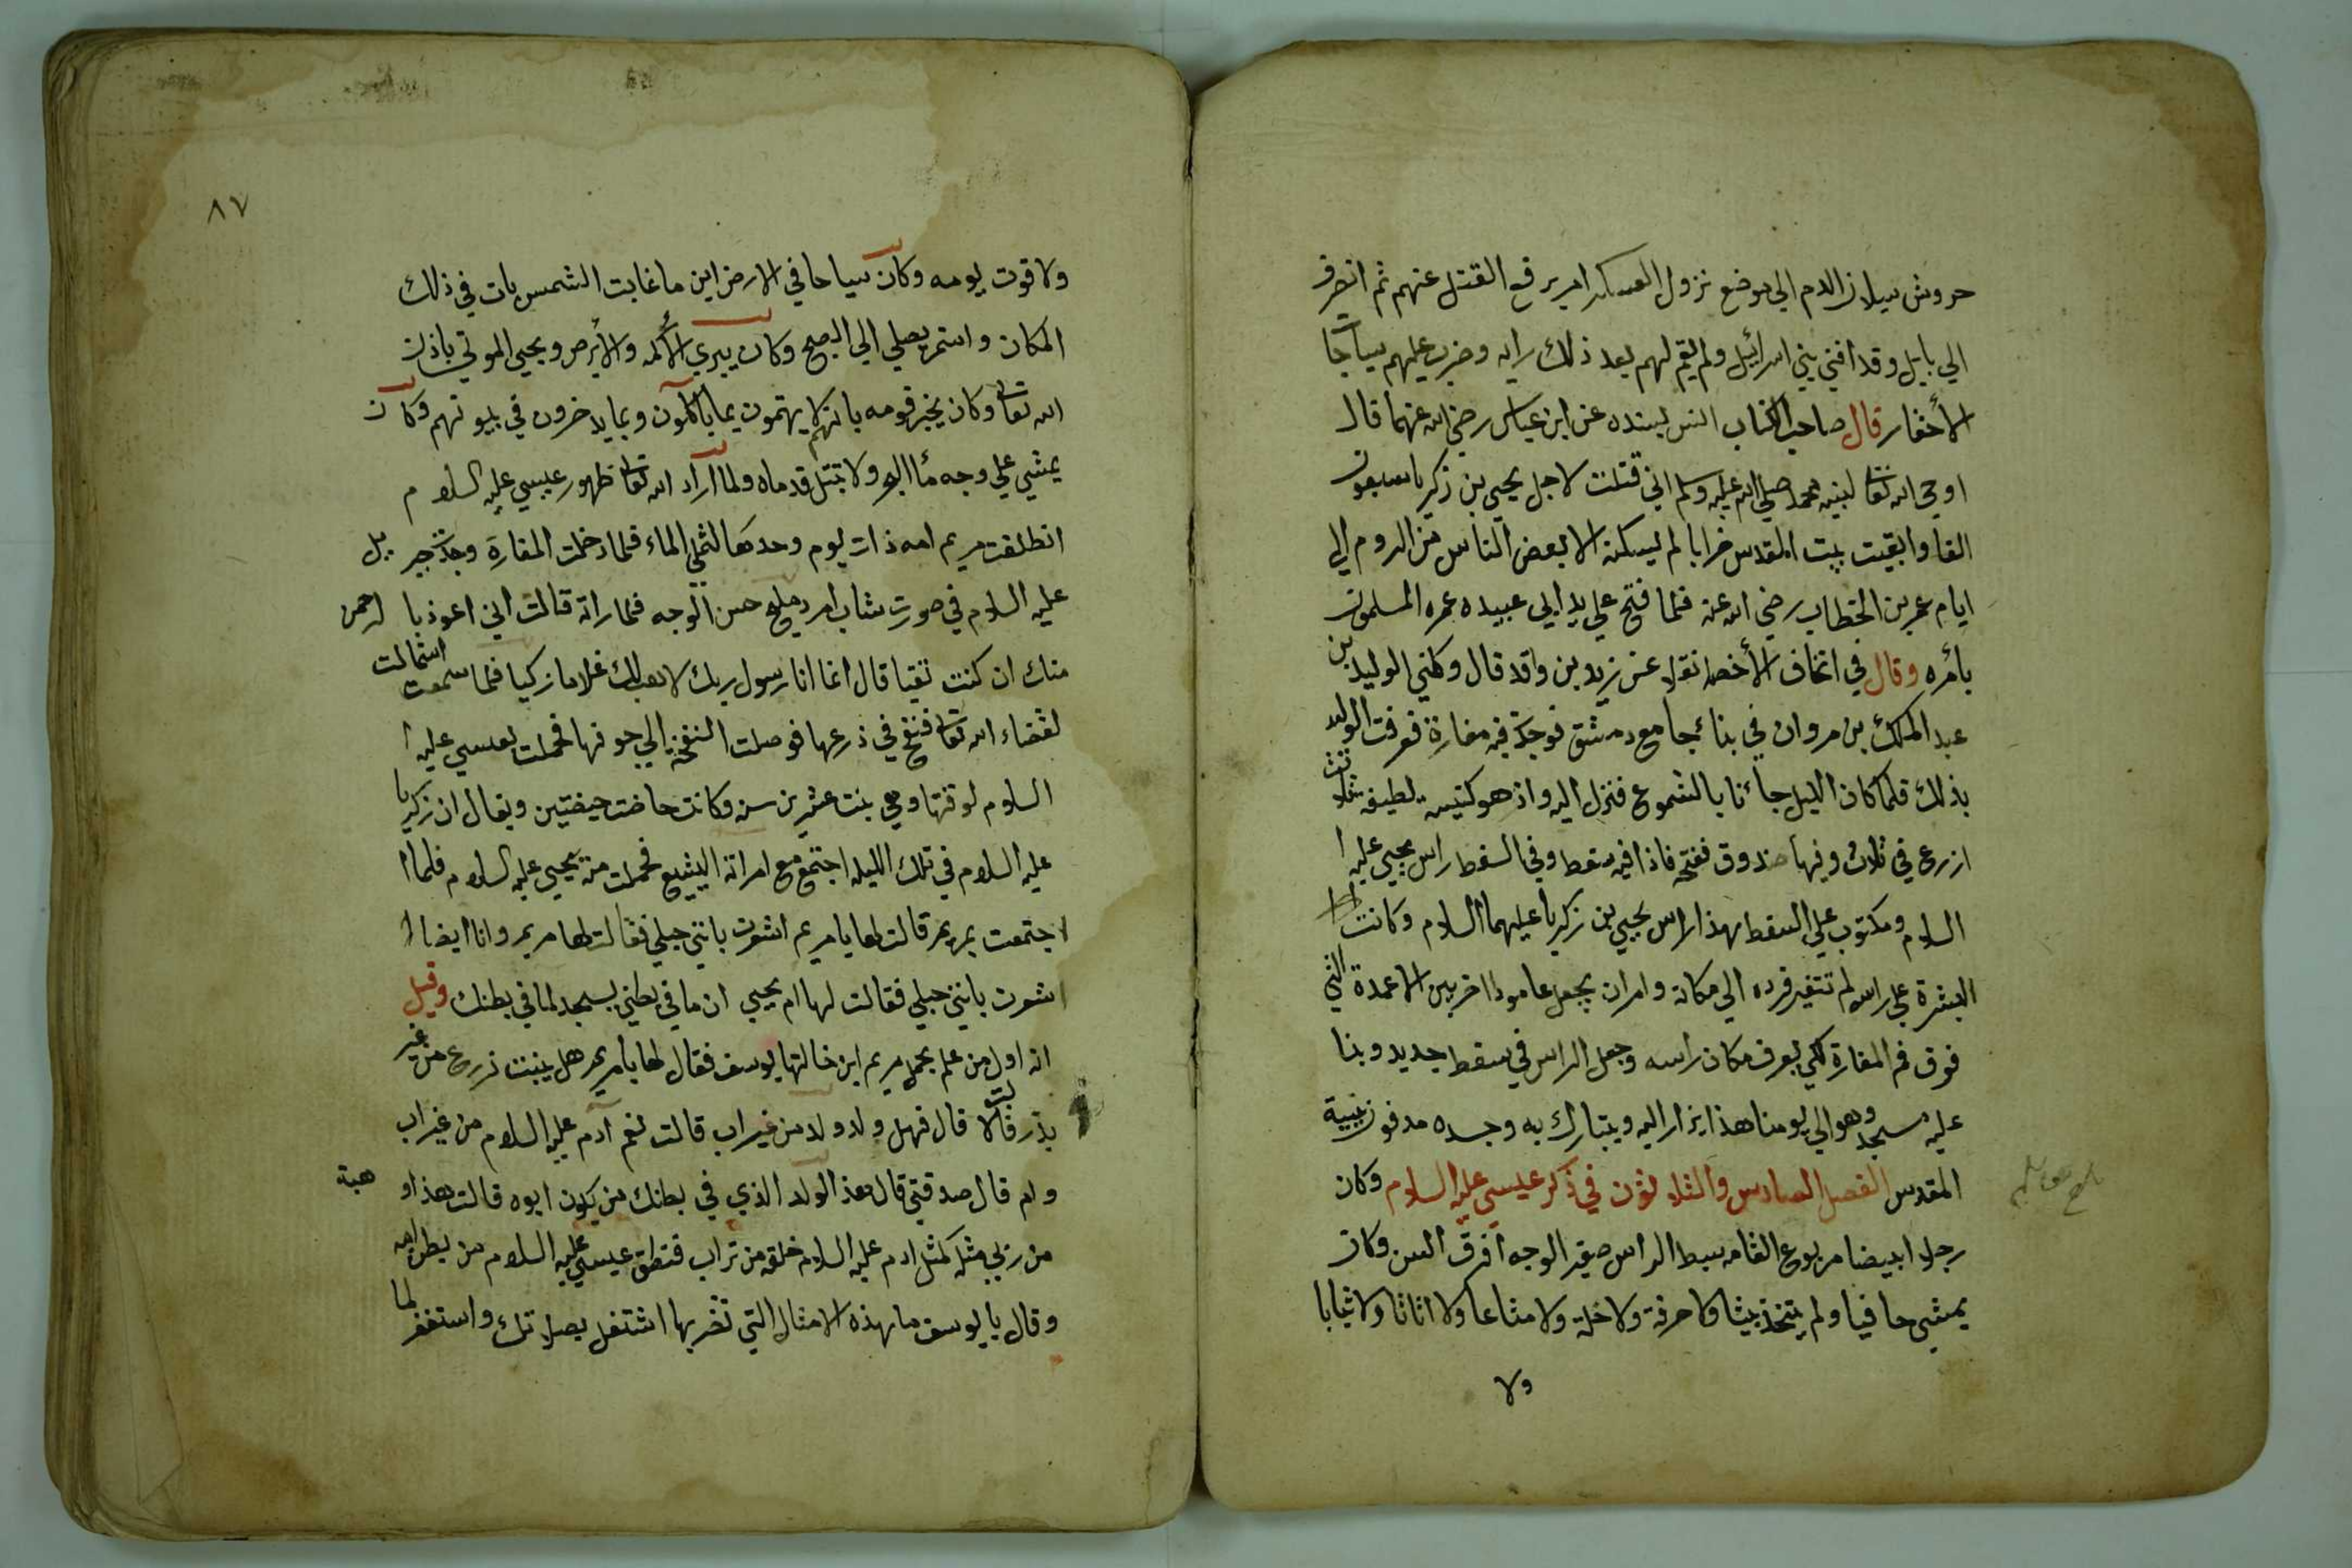 حروش سيلان الدم الي موضع نزول العسكر امر برفع القتل عنهم ثم انصرف
الي بابل وقد افني بني اسرائيل ولم يقم لهم بعد ذلك رايه وضرب عليهم
الأحقار قال صاحب الكتاب بسنده عن ابن عباس رضي الله عنهما قال
اوحي الله تعالي لنبيه محمد صلي الله عليه وسلم اني قتلت لاجل يحيى بن زكريا سبعون
الفا وابقيت بيت المقدس خرابا لم يسكنه الا بعض الناس من الروم الي
ايام عمر بن الخطاب رضي الله عنه فلما فتح علي يد ابي عبيده عمره المسلمون
بأمره وقال في اتحاف الأخصا نقلا عن زيد بن واقد قال وكلني الوليد بن
عبد الملك بن مروان في بنائ جامع دمشق فوجدت فيه مغارة فعرفت الوليد
بذلك فلما كان الليل جائنا بالشموع فنزل اليه واذ هو كنيسه لطيفه ثلاثت
ازرع في ثلاث وفيها صندوق ففتحه فاذا فيه سقط وفي السقط راس يحيي عليه ا
السلام ومكتوب علي السقط هذا راس يحيي بن زكريا عليهما السلام وكانت
البشرة علي راسه لم تتغير فرده الي مكانه وامر ان يجعل عامودا اخر بين الاعمدة التي
فوق فم المغارة لكي يعرف مكان راسه وجعل الراس في سقط جديد وبنا
عليه مسجد وهو الي يومنا هذا يزار اليه ويتبارك به وجسده مدفون ببيت
المقدس الفصل السادس والثلاثون في ذكر عيسي عليه السلام وكان
رجلا ابيضا مربوع القامه سبط الراس صغير الوجه افرق السن وكان
يمشي حافيا ولم يتخذ بيتا ولا حرفة ولا خلة ولا متاعا ولا اثاثا ولا ثيابا
ولا
٨٧
ولا قوت يومه وكان سياحا في الارض اين ما غابت الشمس بات في ذلك
المكان واستمر يصلي الي الصبح وكان يبري الأكمه والأبرص ويحيي الموتي باذن
الله تعالي وكان يخبر قومه بانهم لا يهتمون بما ياكلون وبما يدخرون في بيوتهم وكان
يمشي علي وجه مائ البحر ولا تبتل قدماه ولما اراد الله تعالي ظهور عيسي عليه السلام
انطلقت مريم امه ذات يوم وحدها لتملي الماء فلما دخلت المغارة وجدت جبريل
عليه السلام في صورت شاب امرد مليح حسن الوجه فلما راته قالت اني اعوذ بالرحمن
منك ان كنت تقيا قال انما انا رسول ربك لاهب لك غلاما زكيا فلما سمعت استمالت
لقضاء الله تعالي فنفخ في ذرعها فوصلت النفخة الي جوفها فحملت بعيسي عليه ا
السلام لوقتها وهي بنت عشرين سنه وكانت حاضت حيضتين ويقال ان زكريا
عليه السلام في تلك الليله اجتمع مع امراته اليشيع فحملت منه بيحيي عليه السلام فلما ا
اجتمعت بمريم قالت لها يا مريم اشعرت بانني حبلي فقالت لها مريم وانا ايضا ا
اشعرت بانني حبلي فقالت لها ام يحيي ان ما في بطني يسجد لما في بطنك وقيل
انه اول من علم بحمل مريم ابن خالتها يوسف فقال لها يا مريم هل ينبت زرع من غير
بذر قالت لا قال فهل ولد ولد من غير اب قالت نعم آدم عليه السلام من غير اب
وام قال صدقتي قال هذا الولد الذي في بطنك من يكون ابوه قالت هذا هبة
من ربي مثله كمثل ادم عليه السلام خلقه من تراب فنطق عيسي عليه السلام من بطن امه
وقال يا يوسف ما هذه الامثال التي تضربها اشتغل بصلاتك واستغفر لما